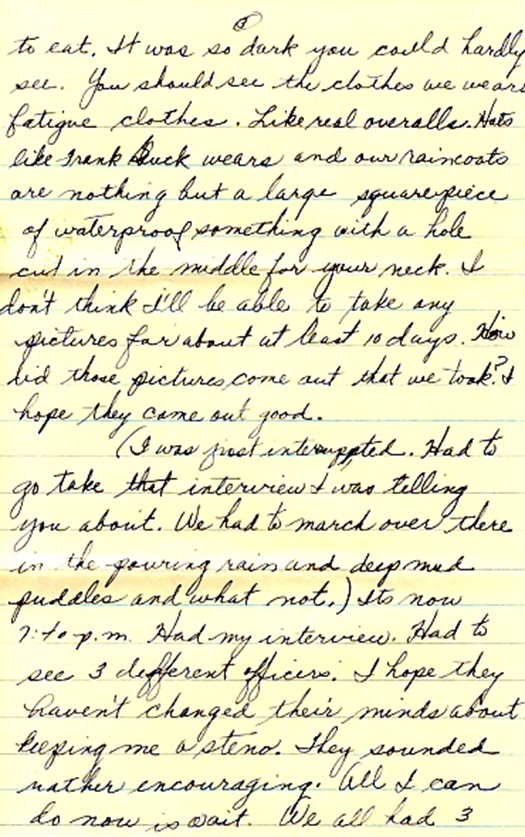 3
to eat. It was so dark you could hardly
see. You should see the clothes we wear
fatigue clothes. Like real overalls. Hats
like Frank Buck wears and our raincoats
are nothing but a large square piece
of waterproof something with a hole
cut in the middle for your neck. I
don't think I'll be able to take any
pictures for about at least 10 days. How
did those pictures come out that we took? I
hope they came out good.
(I was just interuppted. Had to
go take that interview I was telling
you about. We had to march over there
in the pouring rain and deep mud
puddles and what not.) Its now
7:40 p.m. Had my interview. Had to
see 3 different officers. I hope they
haven't changed their minds about
keeping me a steno. They sounded
rather encouraging. All I can
do now is wait. We all had 3